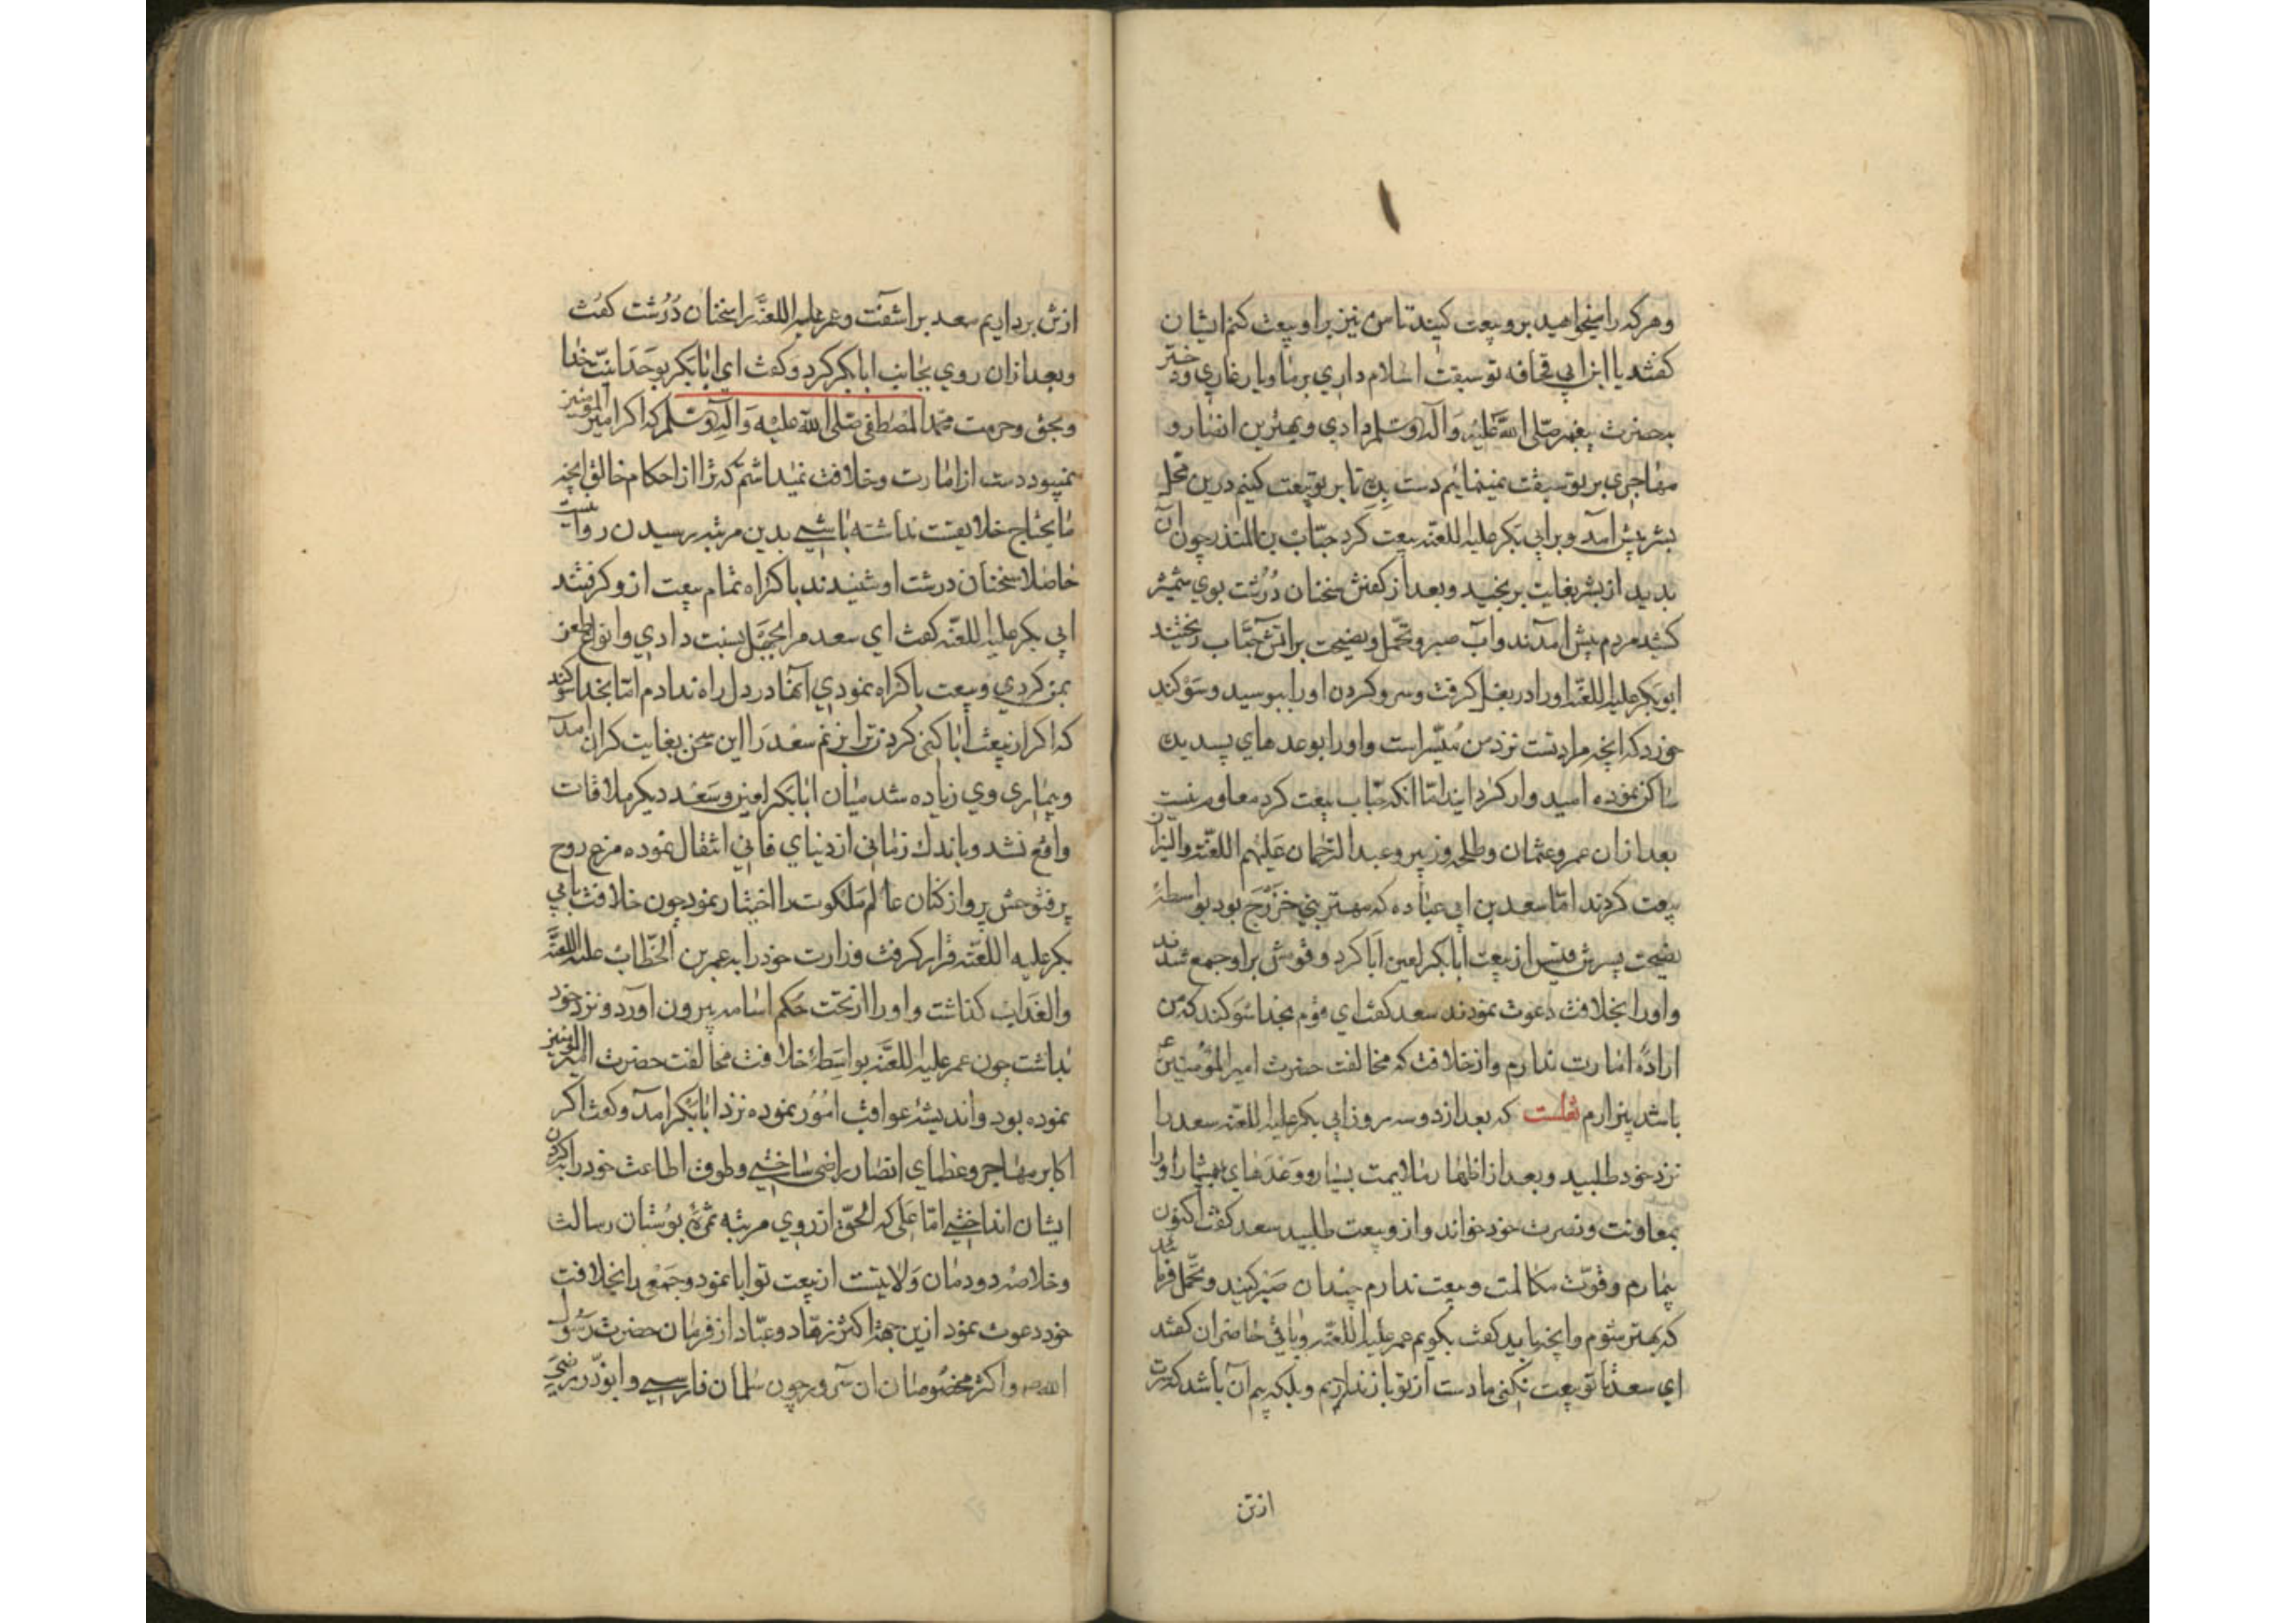 وهرکه را میخواهید برو بیعت کنید تا من نیز براو بیعت کنم ایشان
کفتند یا ابن ابی قحافه تو سبقت اسلام داری بر ما ویار غاری و دختر
بحضرت پیغمبر صلی الله علیه وآله وسلم دادی وبهترین انصار و
مهاجری بر تو سبقت نمینمایم دست بده تا بر تو بیعت کنیم درین محل
بشر پیش آمد وبر ابی بکر علیه اللعنه بیعت کرد حباب بن المنذر چون آن
بدید از بشر بغایت برنجید وبعد از کفتن سخنان درشت بوی شمشیر
کشید مردم پیش آمدند وآب صبر وتحمل ونصیحت بر آتش حباب ریختند
ابوبکر علیه اللعنه اورا در بغل کرفت وسر وکردن اورا ببوسید وسوکند
خورد که آنچه مراد تست نزد من میسر است واورا بوعدهای پسندیده
ساکن نموده امیدوار کردانید اما آنکه حباب بیعت کرد معلوم نیست
بعد ازان عمر وعثمان وطلحه وزبیر وعبد الرحمان علیهم اللعنه والنیران
بیعت کردند اما سعد بن ابی عباده که مهتر بنی خزرج بود بواسطهٔ
نصیحت پسرش قیس از بیعت ابابکر لعین ابا کرد وقومش براو جمع شدند
واورا بخلافت دعوت نمودند سعد کفت ای قوم بخدا سوکند که من
ارادهٔ امارت ندارم واز خلافت که مخالفت حضرت امیر المؤمنین ع
باشد بیزارم نقلست که بعد از دو سه روز ابی بکر علیه اللعنه سعد را
نزد خود طلبید وبعد از اظهار ملایمت بسیار ووعدهای بیشمار اورا
بمعاونت ونصرت خود خواند وازو بیعت طلبید سعد کفت اکنون
بیمارم وقوت مکالمت وبیعت ندارم چندان صبر کنید وتحمل فرمائید
که بهتر شوم وآنچه باید کفت بکویم عمر علیه اللعنه وباقی حاضران کفتند
ای سعد تا تو بیعت نکنی ما دست از تو باز نداریم وبلکه بیم آن باشد که سرت
ازتن
ازتن برداریم سعد براشفت وعمر علیه اللعنه را سخنان درشت کفت
وبعد ازان روی بجانب ابابکر کرد وکفت ای ابابکر بوحدانیت خدا
وبحق وحرمت محمد المصطفی صلی الله علیه وآله وسلم که اکر امیر المؤمنین
نمیبود دست از امارت وخلافت نمیداشتم که ترا از احکام خالق آنچه
مایحتاج خلایقست نداشته باشی بدین مرتبه رسیدن روا نیست
حاصلا سخنان درشت او شنیدند باکراه تمام بیعت ازو کرفتند
ابی بکر علیه اللعنه کفت ای سعد مرا بجهل نسبت دادی وانواع طعن
بمن کردی وبیعت باکراه نمودی آنها در دل راه ندادم اما بخدا سوکند
که اکر از بیعت ابا کنی کردن ترا بزنم سعد را این سخن بغایت کران آمد
وبیماری وی زیاده شد میان ابابکر لعین وسعد دیکر ملاقات
واقع نشد وباندک زمانی از دنیای فانی انتقال نموده مرغ روح
پرفتوحش پرواز کنان عالم ملکوت را اختیار نمود چون خلافت بابی
بکر علیه اللعنه قرار کرفت وزارت خودرا به عمر بن الخطاب علیه اللعنه
والعذاب کذاشت واورا از تحت حکم اسامه بیرون آورد ونزد خود
بداشت چون عمر علیه اللعنه بواسطهٔ خلافت مخالفت حضرت امیر المؤمنین
نموده بود واندیشهٔ عواقب امور نموده نزد ابابکر آمد وکفت اکر
اکابر مهاجر وعظمای انصار راضی ساختی وطوق اطاعت خودرا بکردن
ایشان انداختی اما علی که الحق از روی مرتبه ثمرهٔ بوستان رسالت
وخلاصهٔ دودمان ولایتست از بیعت تو ابا نمود وجمعی را بخلافت
خود دعوت نمود ازین جهة اکثر زهاد وعباد از فرمان حضرت رسول
الله ص واکثر مخصوصان آن سرور چون سلمان فارسی وابوذر رضی